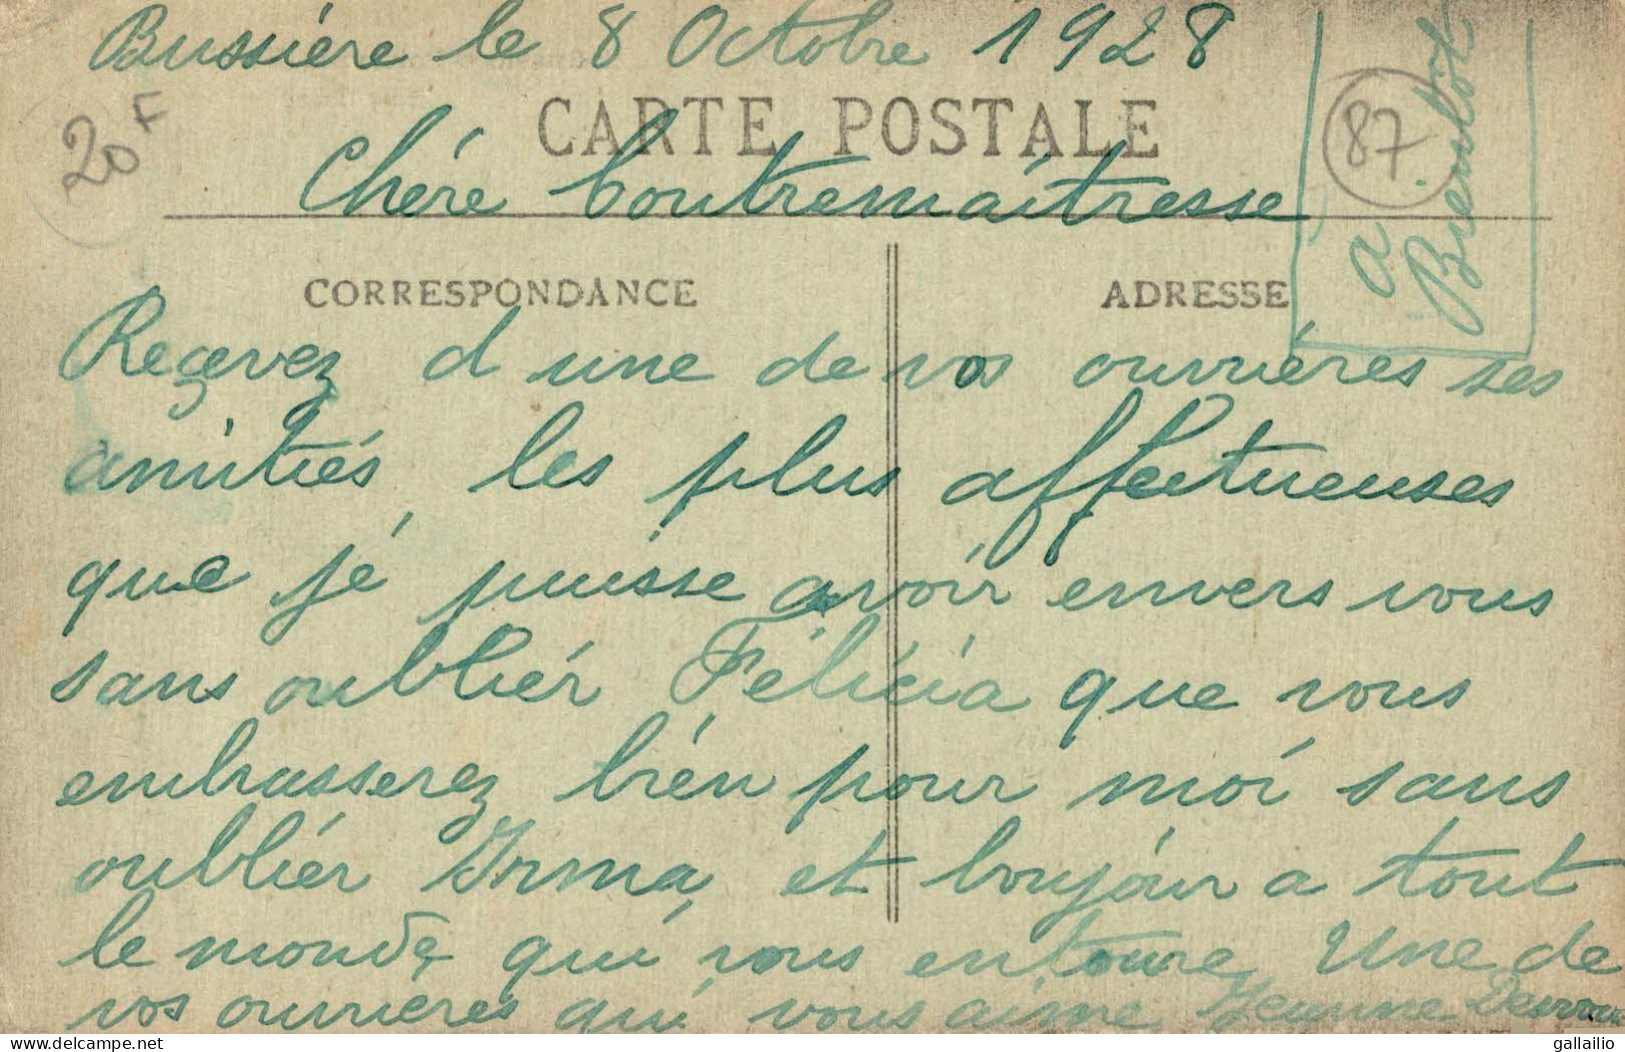 Bussière le 8 Octobre 1928
20F
CARTE POSTALE
87
à Bientôt
Chére Contremaitresse
CORRESPONDANCE
ADRESSE
Reçevez d une de vos ouvriéres ses
amitiés les plus affectueuses
que jé puisse avoir envers vous
sans oubliér Félicia que vous
embrasserez bién pour moi sans
oubliér Irma, et boujour a tout
le monde qui vous entoure Une de
vos ouvriéres qui vous aime Jeanne
gallailio